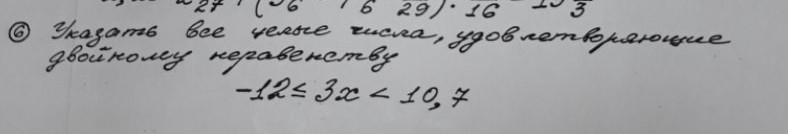 ⑥ Указать все целые числа, удовлетворяющие
двойному неравенству
-12 ≤ 3x < 10,7